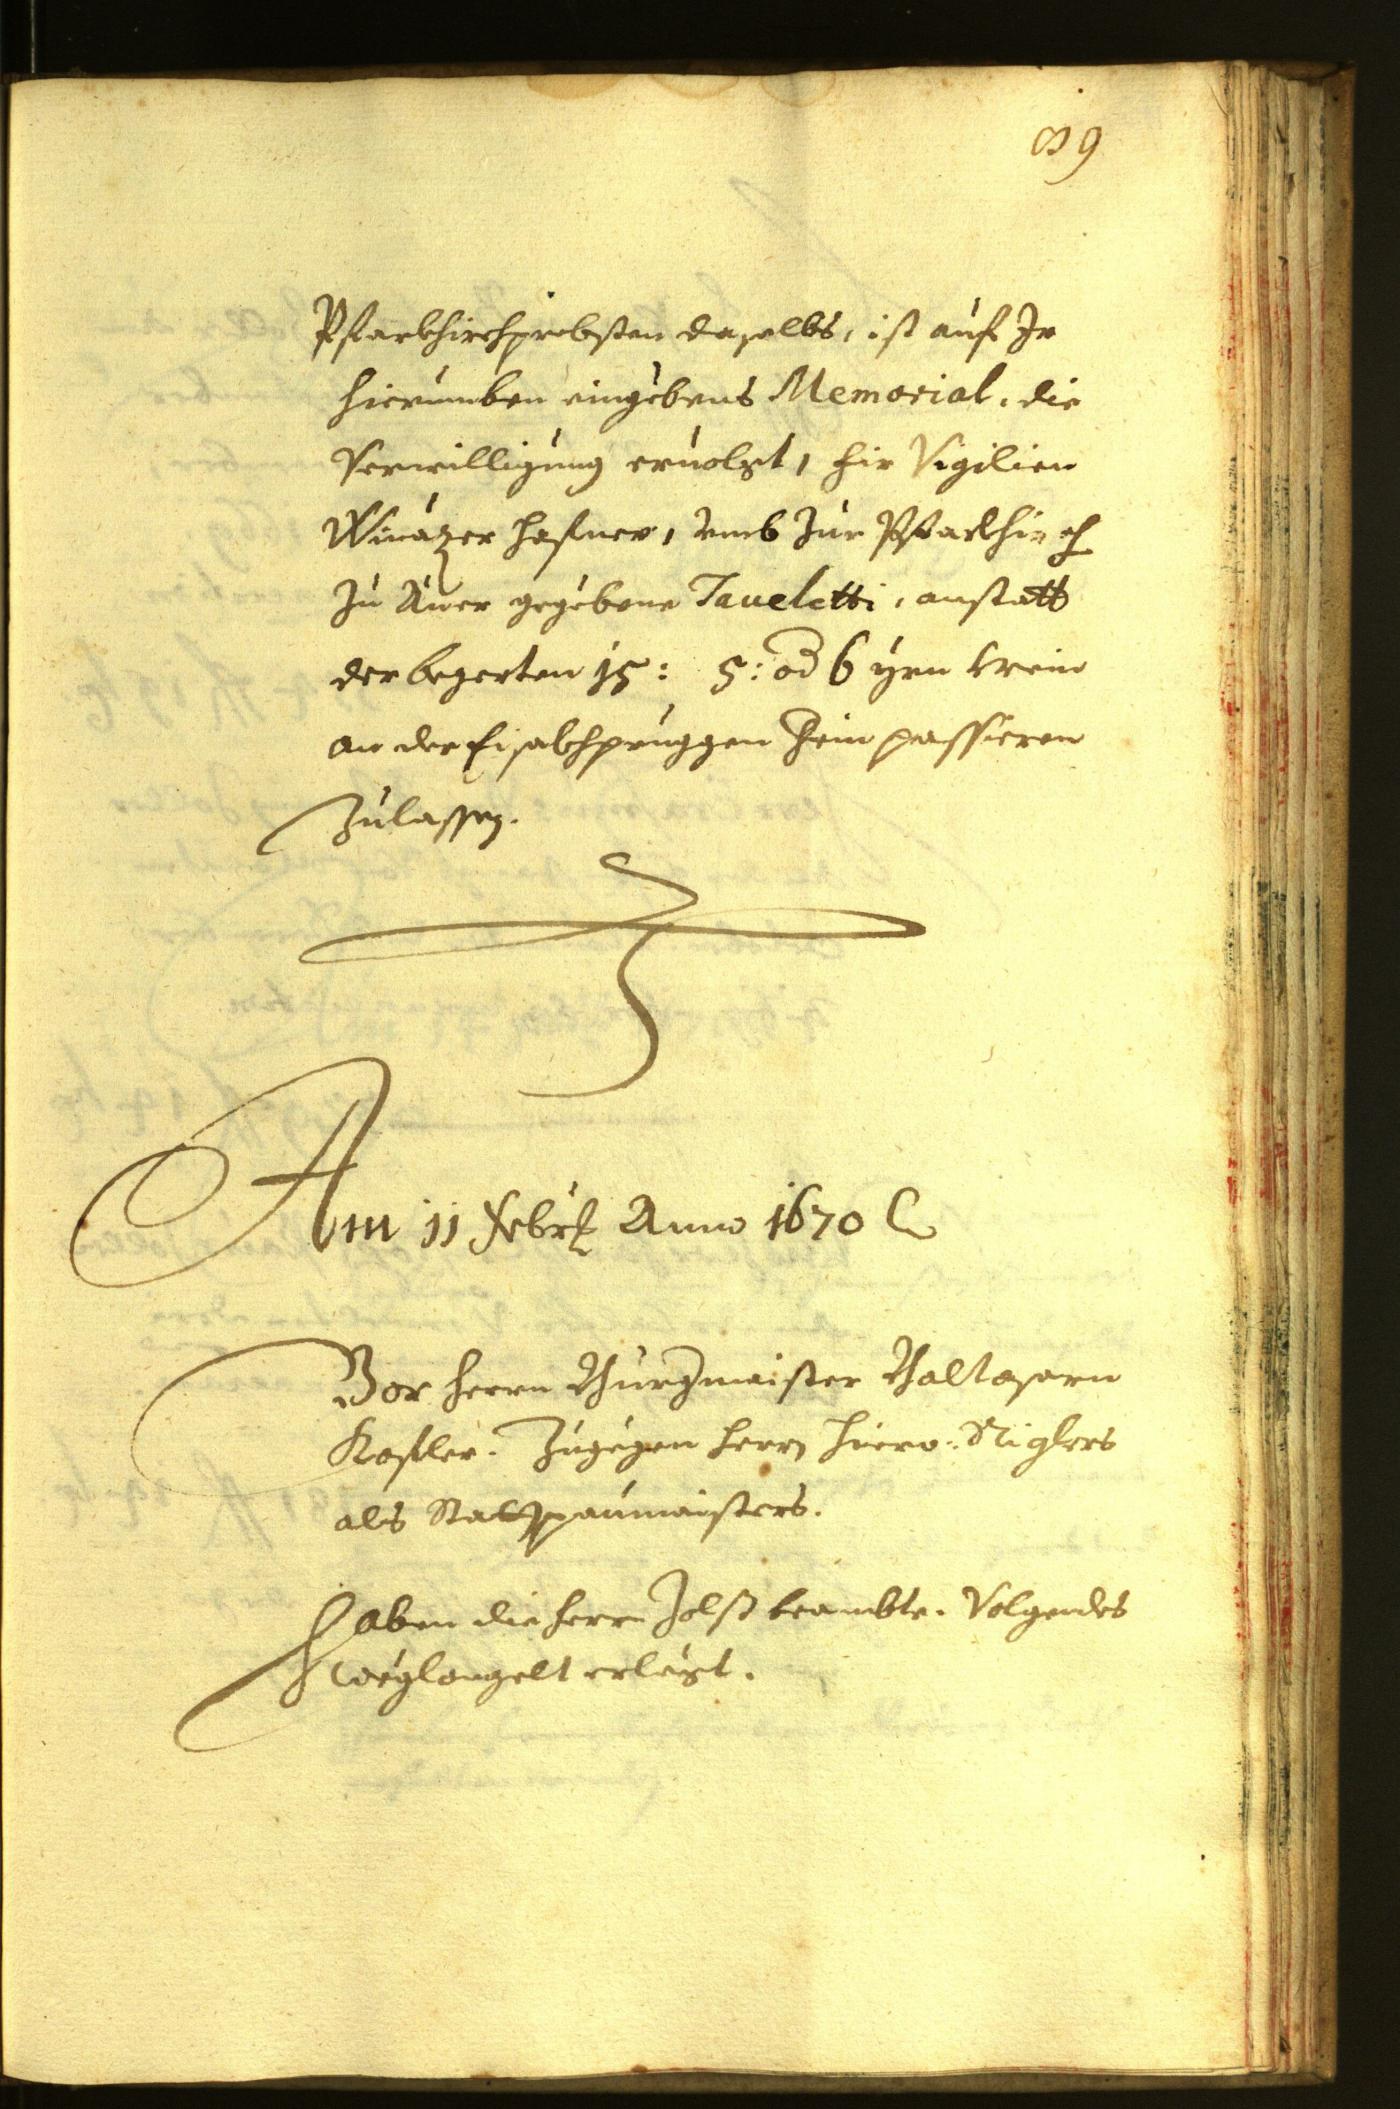 89
Pfarrkhirchprobsten daselbs, ist auf Ir
hierumben eingebens Memorial, die
Verwilligung ervolgt, hir Vigilien
Winazer Hafner, umb zur Pfarrkhirch
zu Auer gegebene Taueletti, anstatt
der begerten 15: 5: od 6 yrn wein
an der Eisakhpruggen herein passieren
zulassen.
Am 11 Febr: Anno 1670
Vor Herrn Burgmaister Baltasarn
Kofler. Zugegen Herrn Hiero: Niglers
als Stattpaumaisters.
Haben die Herrn Zolls beambte. Volgendes
Weglongelt erlegt.